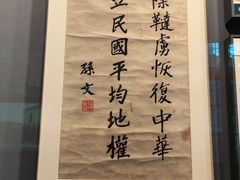 除韃虜恢復中華
立民國平均地權
孫文